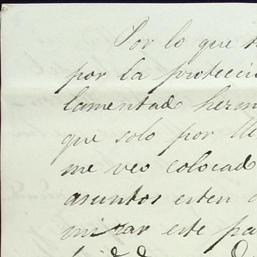 Por lo que
por la protecci
lamentad herm
que solo por
me veo colocad
asuntos esten
mirar este pa